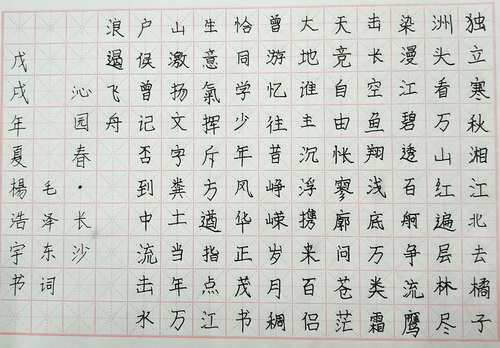 独立寒秋湘江北去橘子
洲头看万山红遍层林尽
染漫江碧透百舸争流鹰
击长空鱼翔浅底万类霜
天竞自由怅寥廓问苍茫
大地谁主沉浮携来百侣
曾游忆往昔峥嵘岁月稠
恰同学少年风华正茂书
生意氣挥斥方遒指点江
山激扬文字粪土当年万
户侯曾记否到中流击水
浪遏飞舟
沁园春·长沙
毛泽东词
戊戌年夏楊浩宇书